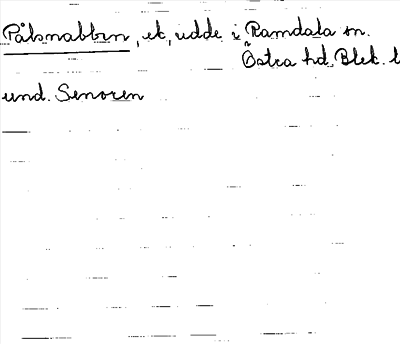 Pålsnabben, ek, udde i Ramdala sn.
Östra hd. Blek. l
und. Senoren